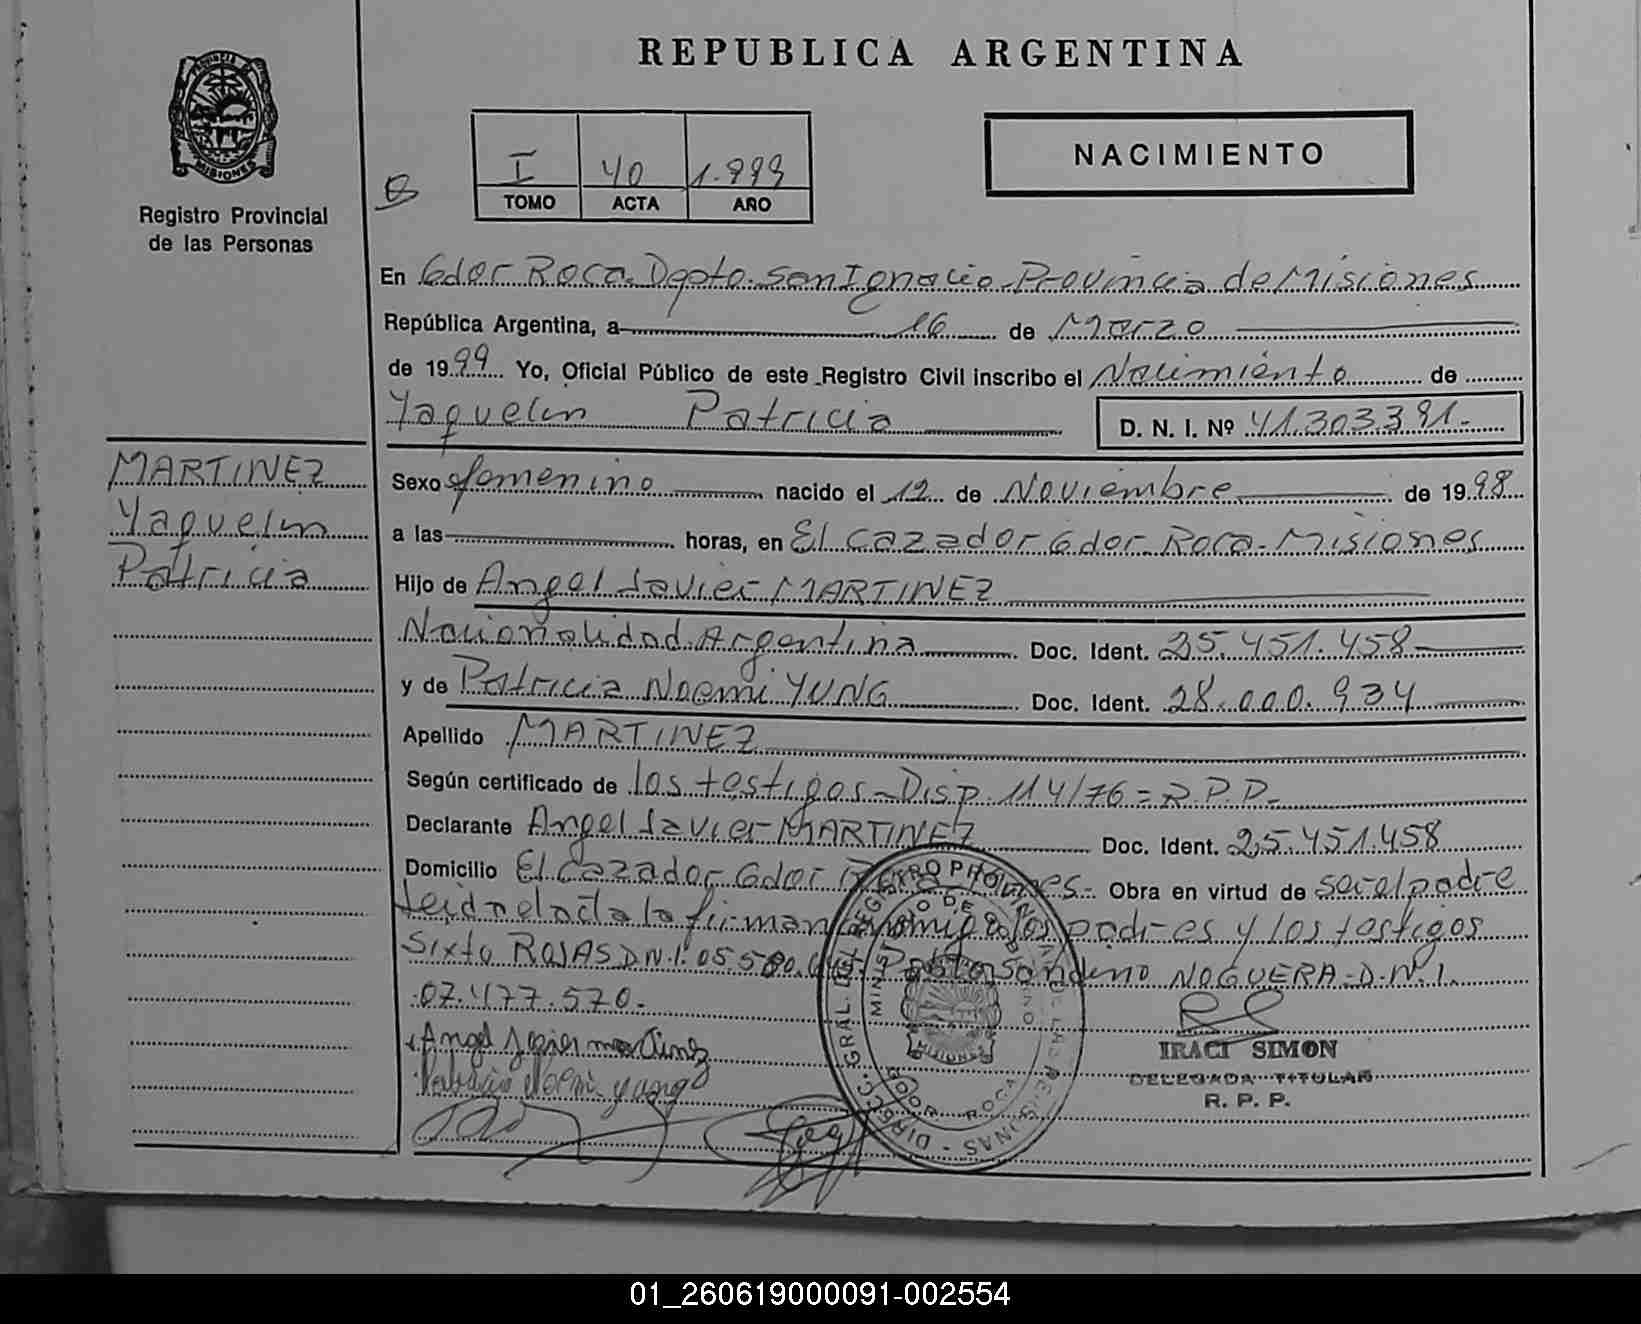 REPUBLICA ARGENTINA
PROVINCIA DE
MISIONES
Registro Provincial
de las Personas
I 40 1.999
TOMO ACTA AÑO
NACIMIENTO
En Gdor Roca. Dpto. San Ignacio. Provincia de Misiones
República Argentina, a 16 de Marzo
de 1999 Yo, Oficial Público de este Registro Civil inscribo el Nacimiento de
Yaquelin Patricia D. N. I. Nº 41.303.391.-
MARTINEZ
Yaquelin
Patricia
Sexo femenino nacido el 12 de Noviembre de 1998
a las horas, en El Cazador Gdor Roca. Misiones
Hijo de Angel Javier MARTINEZ
Nacionalidad Argentina Doc. Ident. 25.451.458
y de Patricia Noemi YUNG Doc. Ident. 28.000.934
Apellido MARTINEZ
Según certificado de los testigos - Disp. 114/76 = R.P.P.-
Declarante Angel Javier MARTINEZ Doc. Ident. 25.451.458
Domicilio El Cazador Gdor Obra en virtud de ser el padre
leida el acta la firman padres y los testigos
Sixto ROJAS D.N.I. NOGUERA - D.N.I.
07.477.570.
Angel Javier martinez
Patricia Noemi yung
IRACI SIMON
DELEGADA TITULAR
R. P. P.
01_260619000091-002554